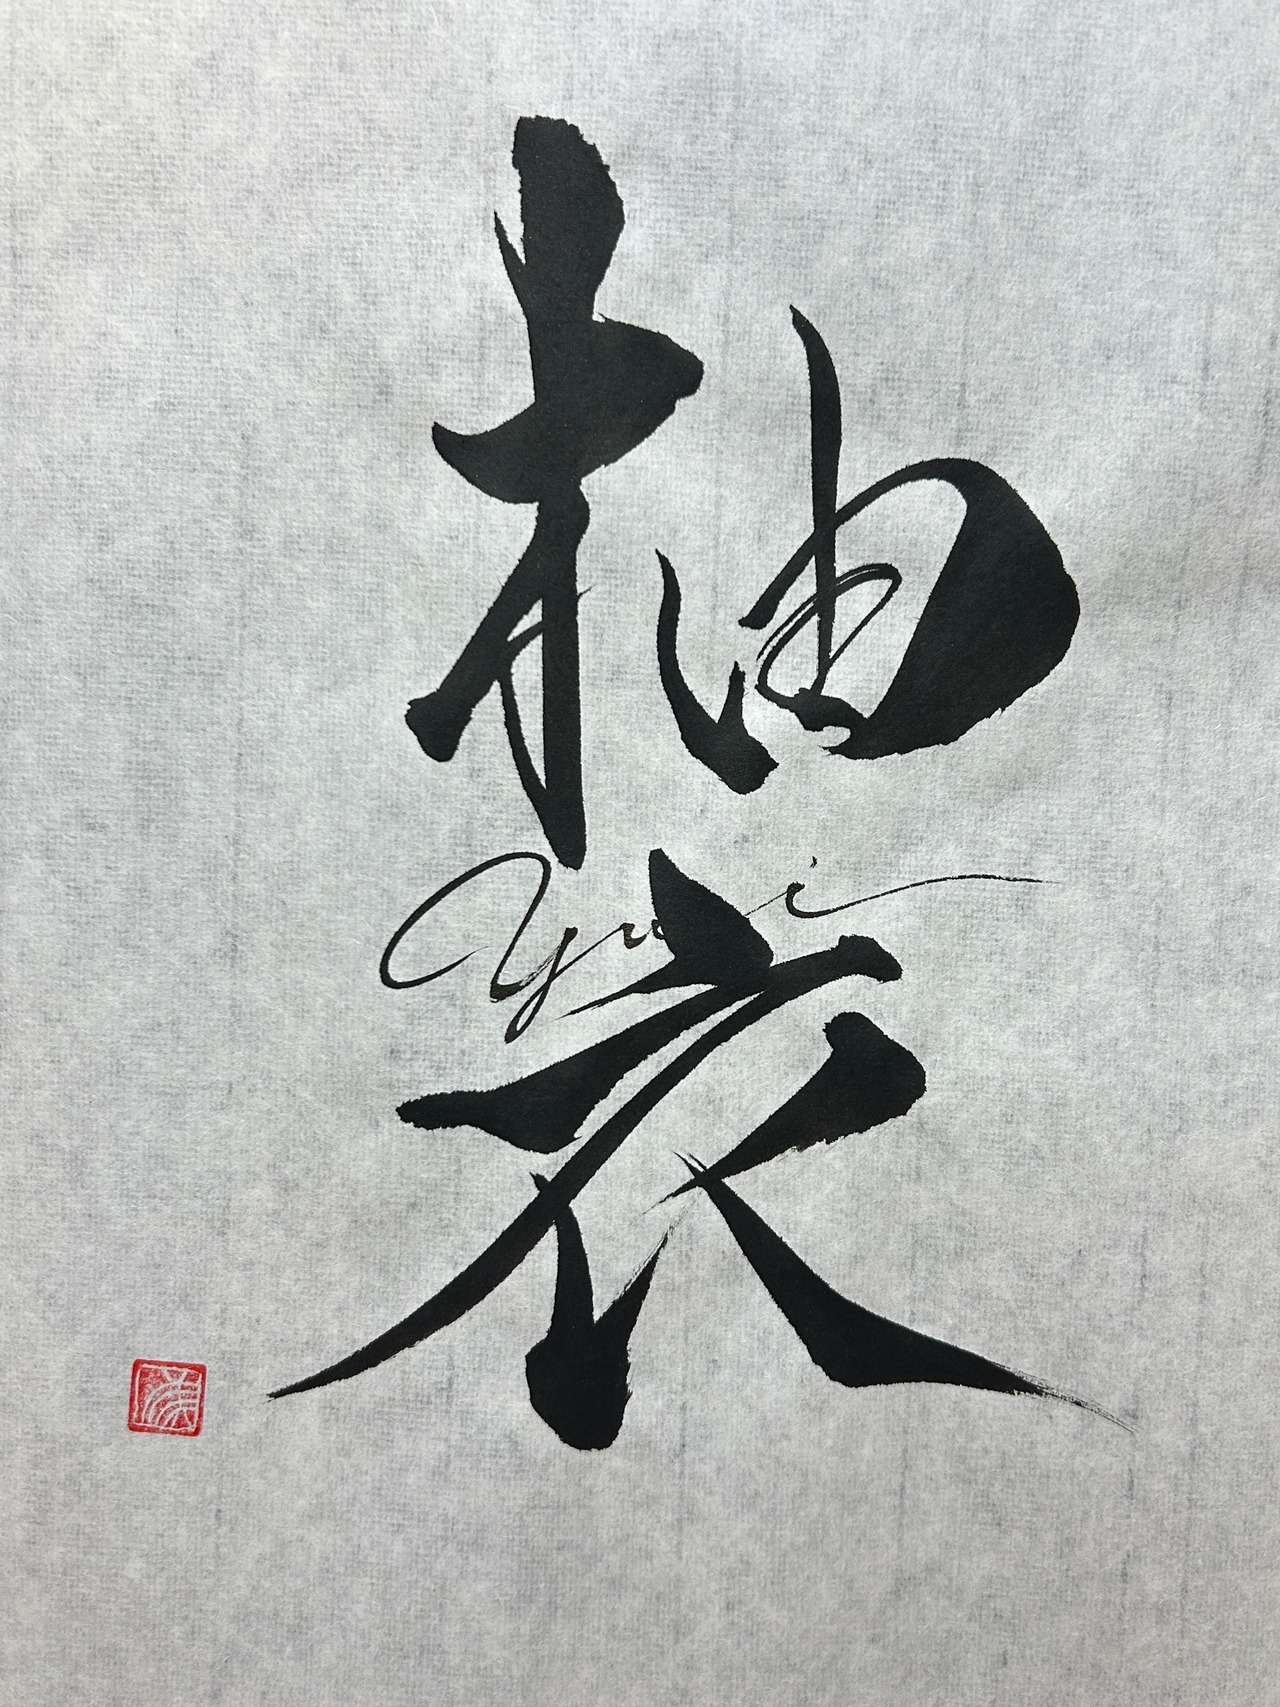 柚
yui
衣